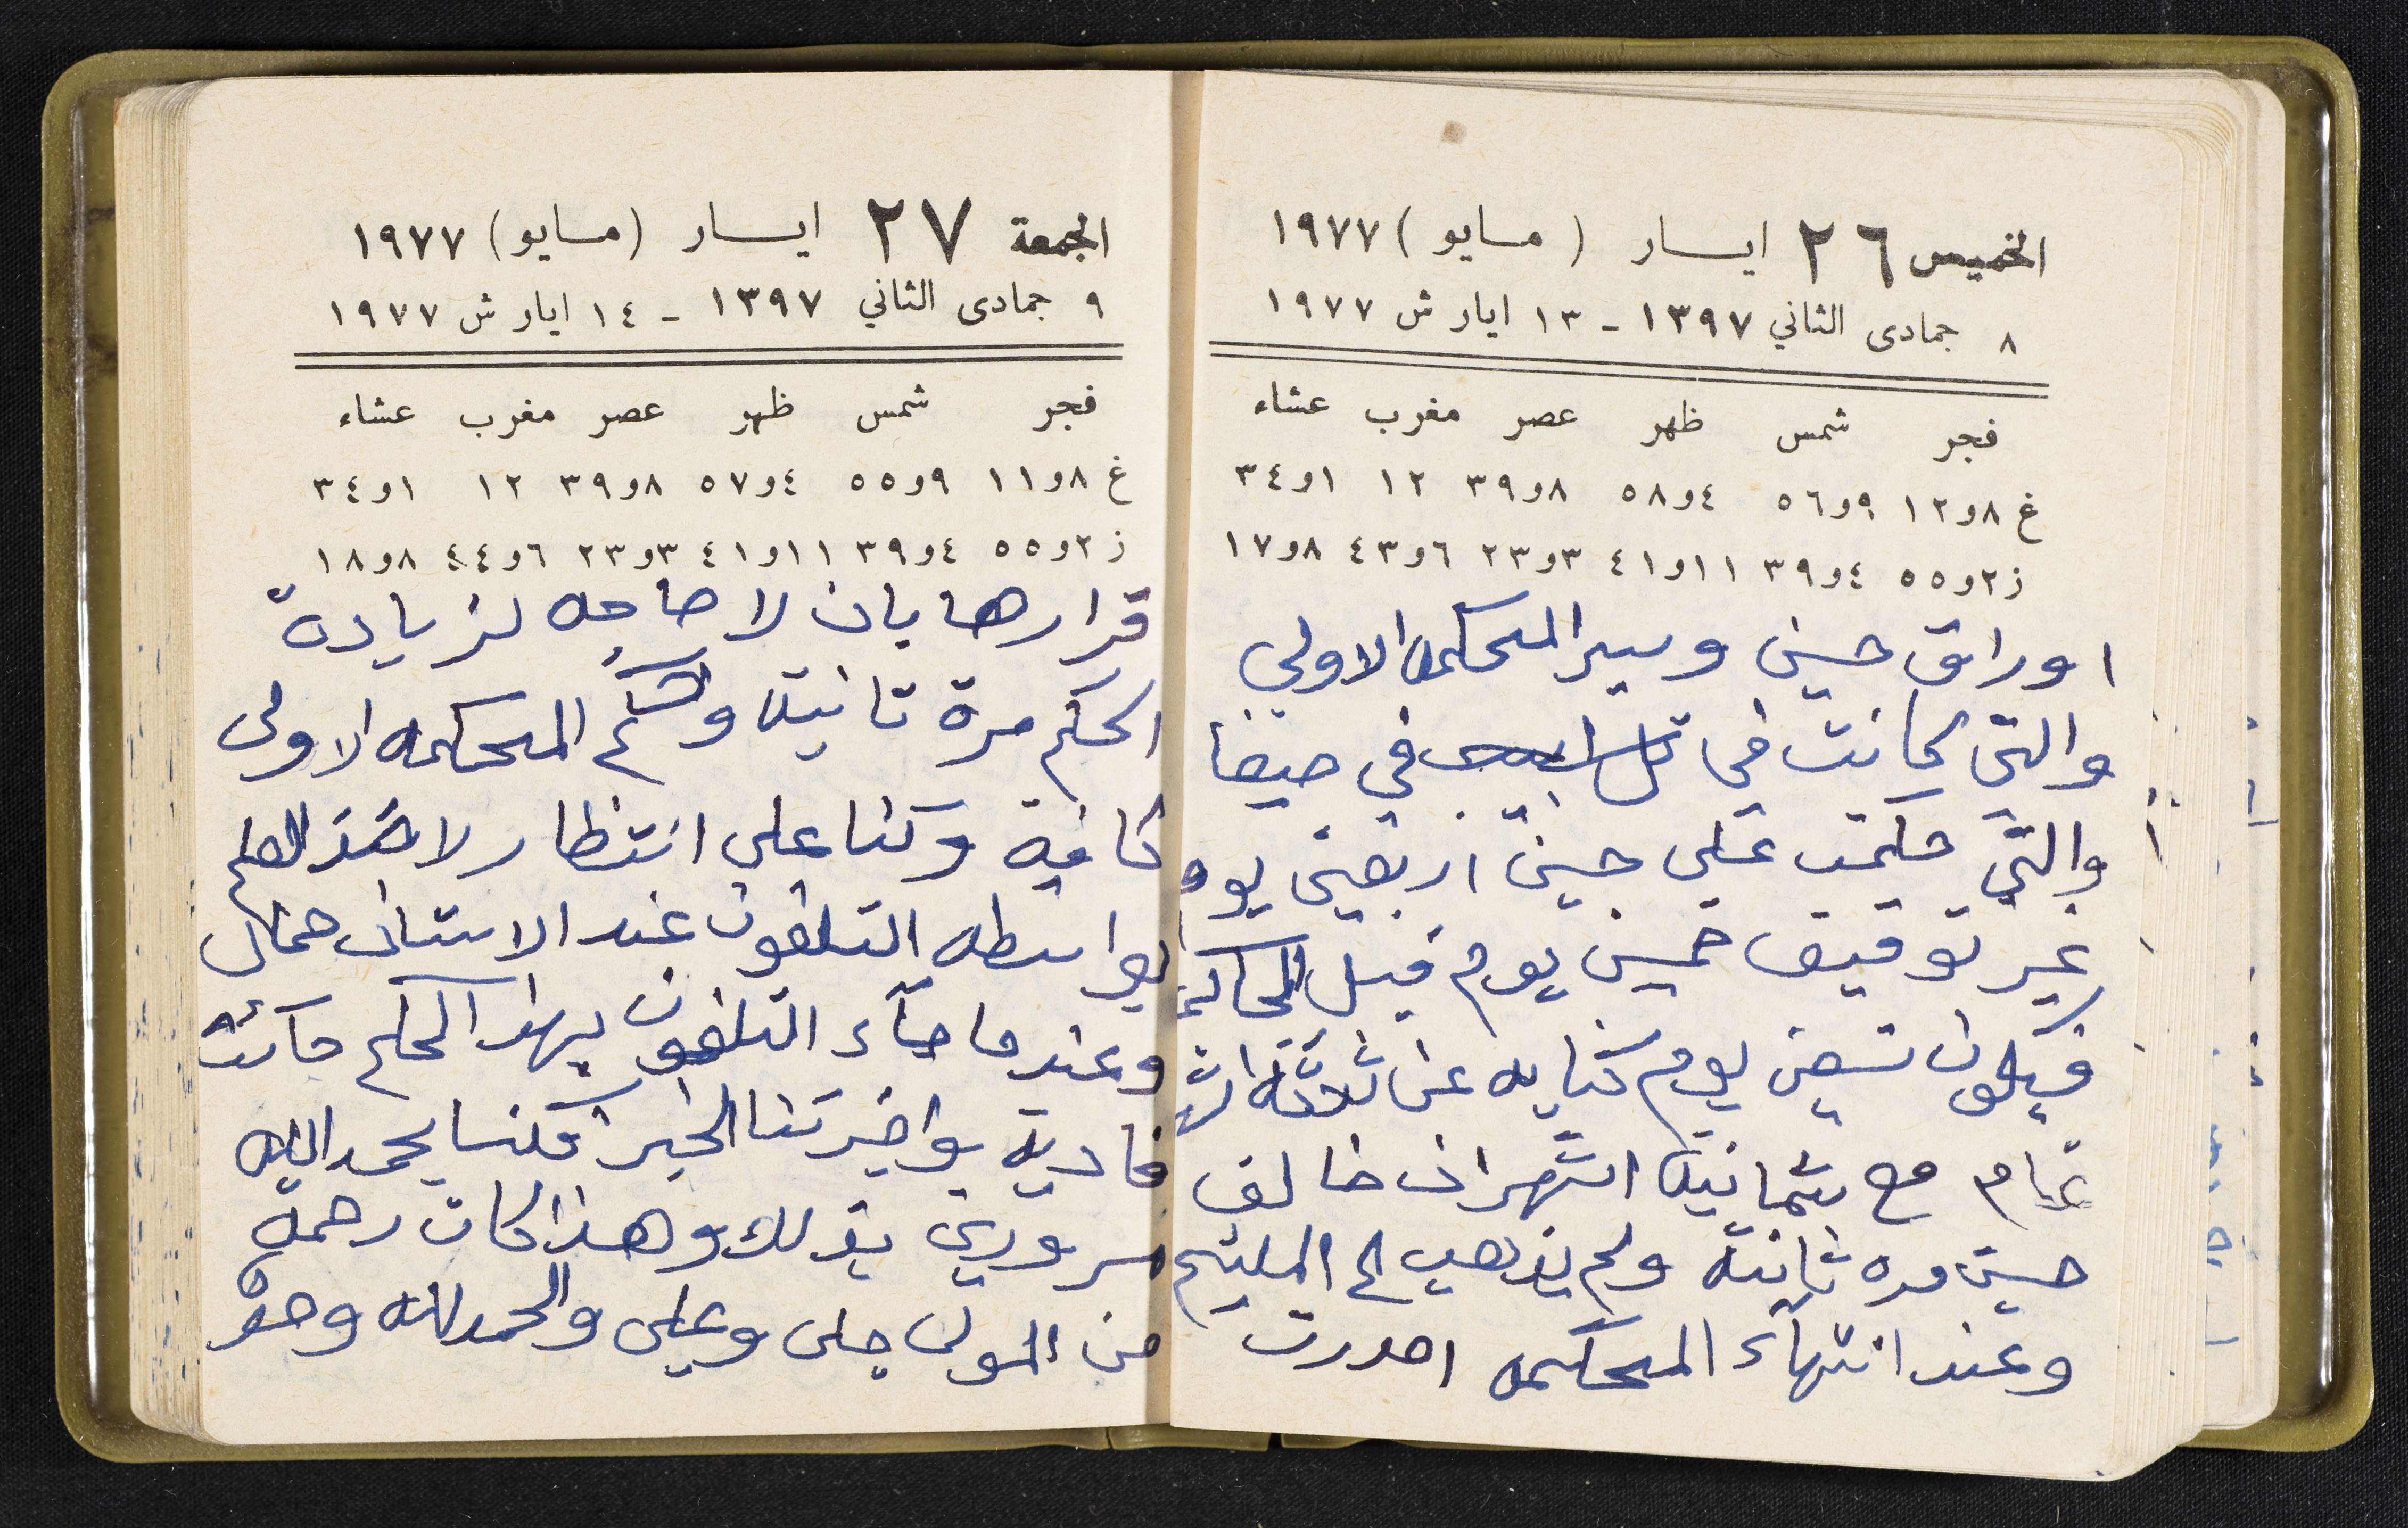 الخميس ٢٦ ايسار (مسايو) ١٩٧٧
٨ جمادى الثاني ١٣٩٧ - ١٣ ايار ش ١٩٧٧
فجر شمس ظهر عصر مغرب عشاء
غ ٨و١٢ ٩و٥٦ ٤و٥٨ ٨و٣٩ ١٢ ١و٣٤
ز ٢و٥٥ ٤و٣٩ ١١و٤١ ٣و٢٣ ٦و٤٣ ٨و١٧
اوراق حسين وسير المحكمه الاولي
والتي كانت في تل ابيب في حيفا
والتي حكمت على حسين اربعين يوم
غير توقيف خمسين يوم قبل المحاكمة
فيكون تسعين يوم كنايه عن ثلاثة اشهر
تمام مع ثمانية اشهر ان خالف
حسين مره ثانية ولم يذهب الى المليتم
وعند انتهآء المحكمه اصدرت
الجمعة ٢٧ ايسار (مسايو) ١٩٧٧
٩ جمادى الثاني ١٣٩٧ - ١٤ ايار ش ١٩٧٧
فجر شمس ظهر عصر مغرب عشاء
غ ٨و١١ ٩و٥٥ ٤و٥٧ ٨و٣٩ ١٢ ١و٣٤
ز ٢و٥٥ ٤و٣٩ ١١و٤١ ٣و٢٣ ٦و٤٤ ٨و١٨
قرارها بان لا حاجه لزيادة
الحكم مرة تانية المحكمه الاولى
كافية وكنا علي انتظار لاخذ العلم
بواسطه التلفون عند الاستاذ جمال
وعندما جآء التلفون بهذا الحكم جائت
فادية واخبرتنا الخبر فكنا بحمد الله
مسرورين بذلك وهذا كان رحمة
من المولى جلى وعلى والحمدلله وهو